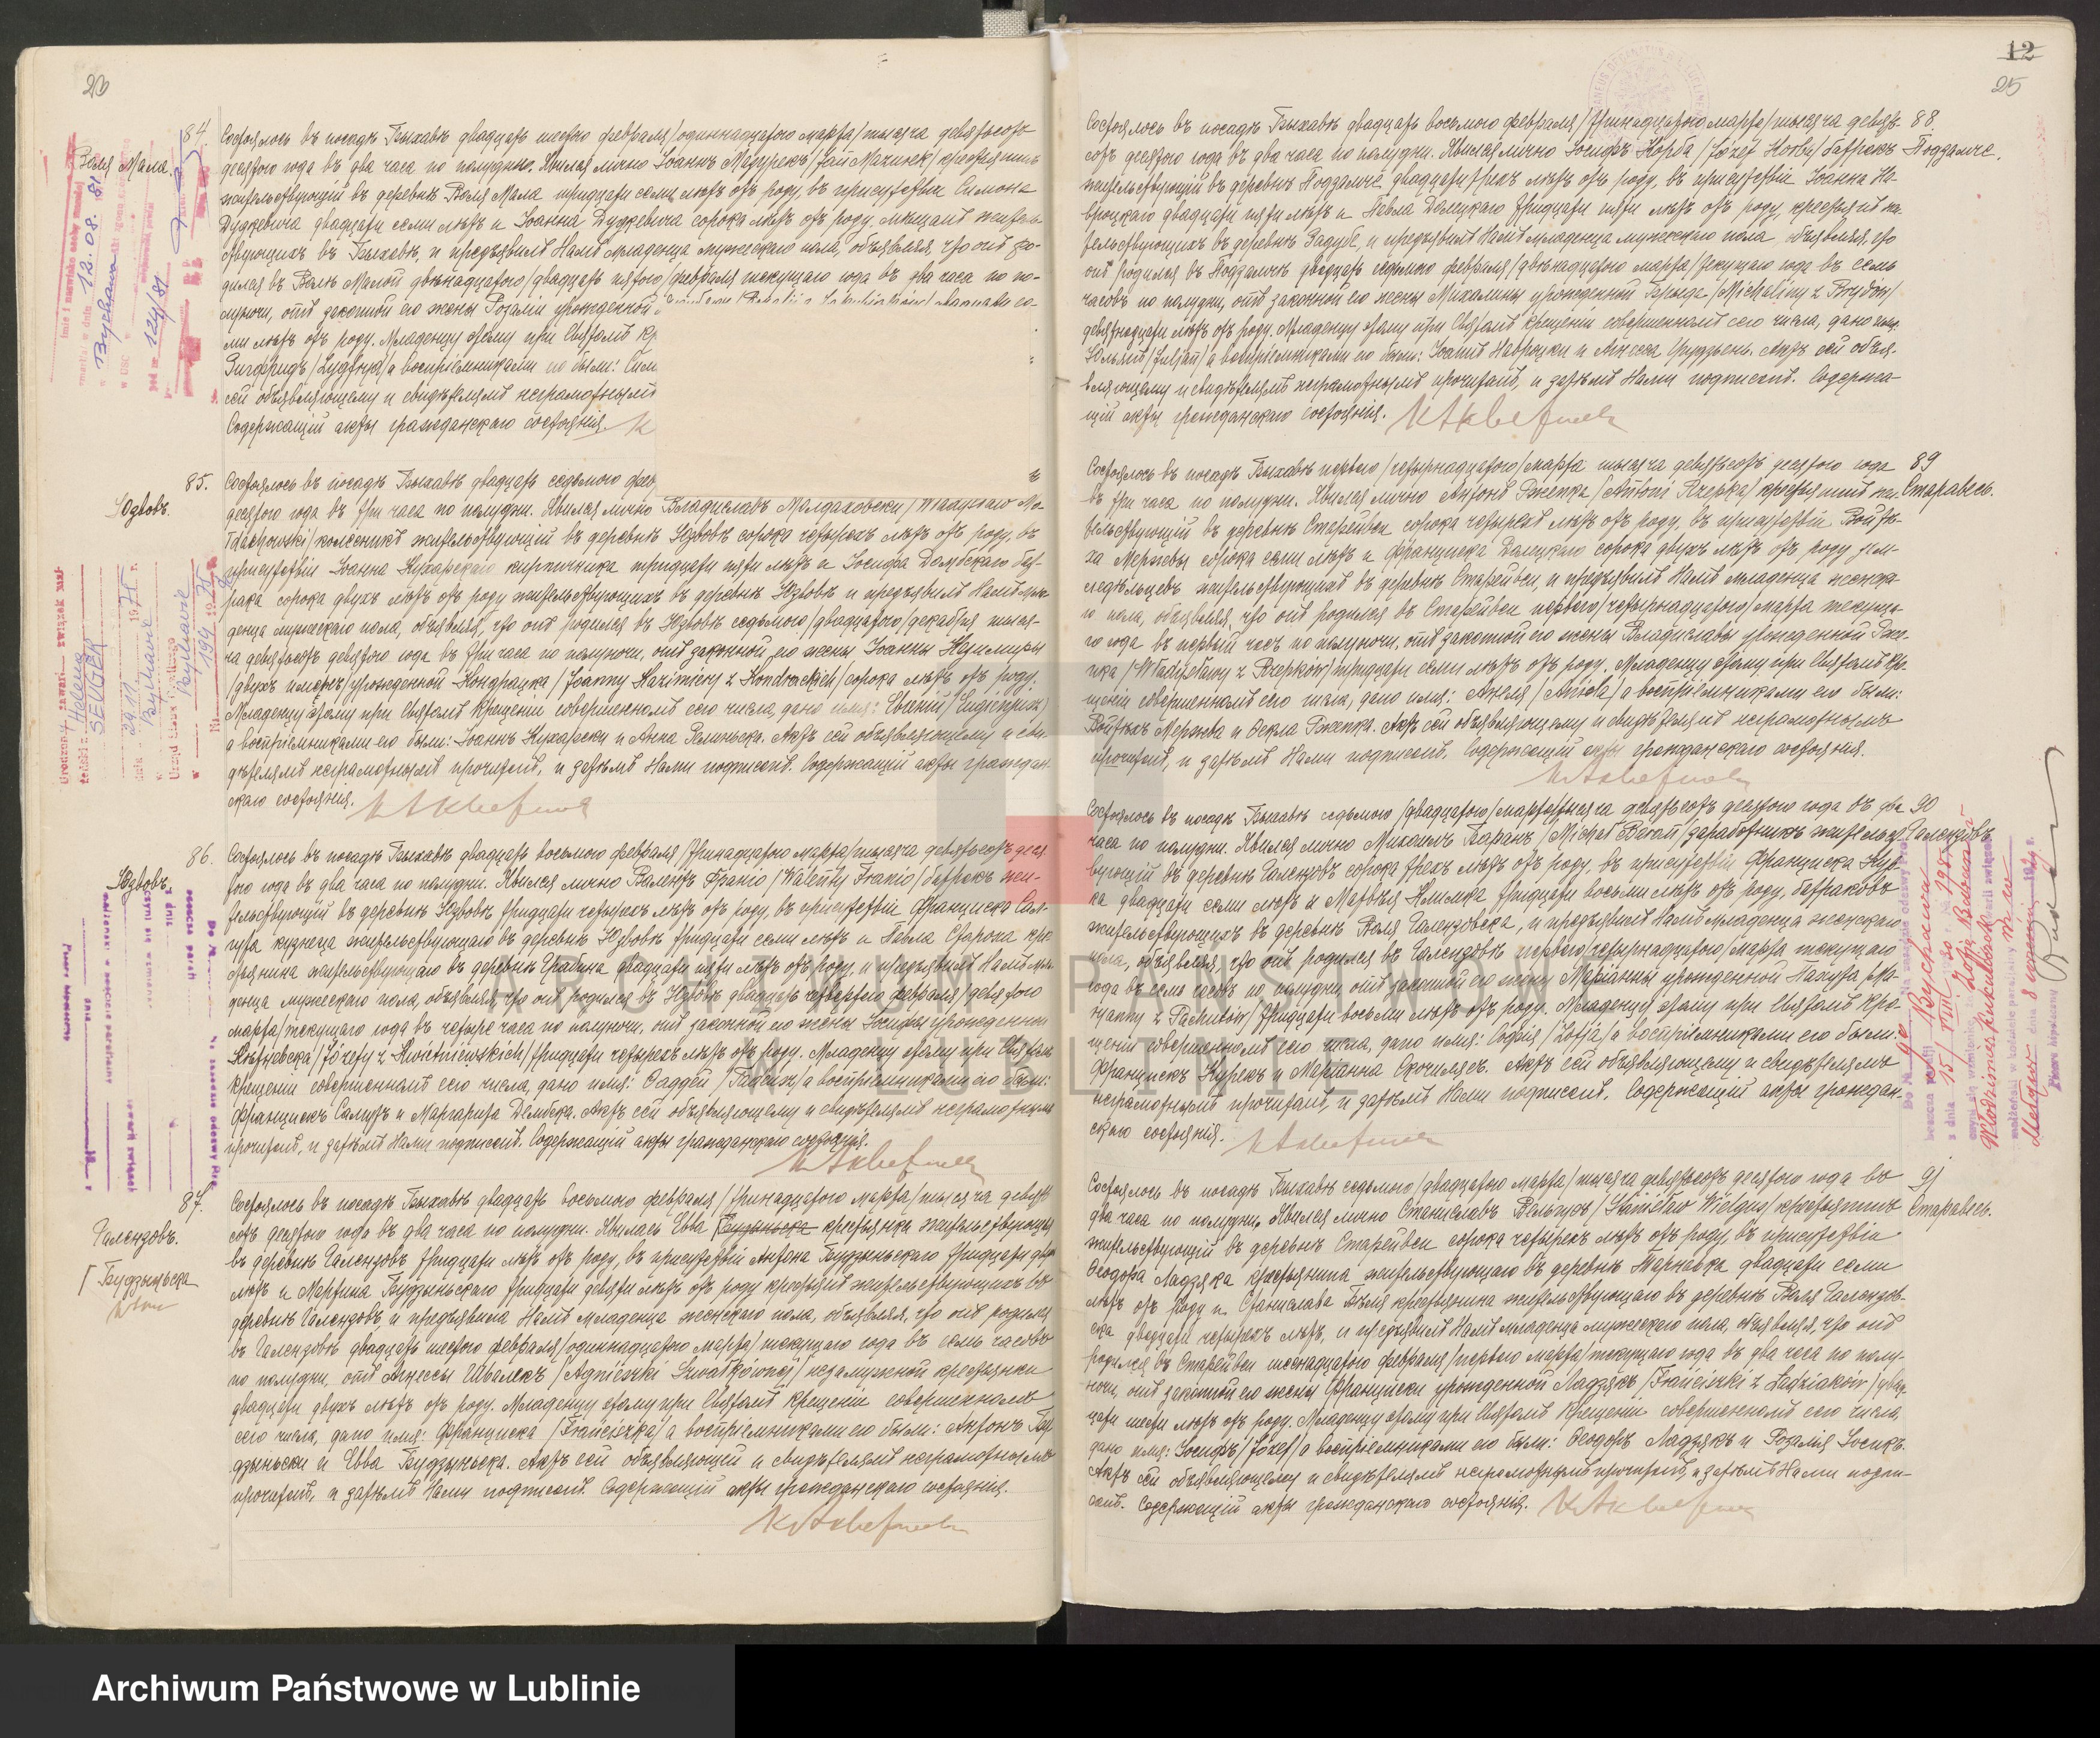 23
84.
Воля Мала.
Состоялось въ посадѣ Быхавѣ двадцать шестого февраля /одиннадцатого марта/ тысяча девятьсотъ
десятого года въ два часа по полудни. Явился лично Іоаннъ /Jan / крестьянинъ
жительствующій въ деревнѣ Воля Мала тридцати семи лѣтъ отъ роду, въ присутствіи Симона
Дудкевича двадцати семи лѣтъ и Іоанна Дудкевича сорока лѣтъ отъ роду, мѣщанъ житель-
ствующихъ въ Быхавѣ, и предъявилъ Намъ младенца мужескаго пола, объявляя, что онъ ро-
дился въ Волѣ Малой двѣнадцатого /двадцать пятого/ февраля текущаго года въ два часа по по-
луночи, отъ законной его жены Розаліи урожденной
ми лѣтъ отъ роду. Младенцу этому при Святомъ Кр
Зигфридъ а воспріемниками его были: Сим
сей объявляющему и свидѣтелямъ неграмотнымъ
Содержащій акты гражданскаго состоянія.
85.
Юзвовъ.
Состоялось въ посадѣ Быхавѣ двадцать седьмого фев
десятого года въ три часа по полудни. Явился лично Владиславъ Молдаховски /Władysław Mo-
łdachowski/ колесникъ жительствующій въ деревнѣ Юзвовѣ сорока четырехъ лѣтъ отъ роду, въ
присутствіи Іоанна Кухарскаго кирпичника тридцати пяти лѣтъ и Іосифа Дембскаго бат-
рака сорока двухъ лѣтъ отъ роду жительствующихъ въ деревнѣ Юзвовѣ и предъявилъ Намъ мла-
денца мужескаго пола, объявляя, что онъ родился въ Юзвовѣ седьмого /двадцатого/ декабря тыся-
ча девятьсотъ девятого года въ три часа по полуночи, отъ законной его жены Іоанны Казимиры
/двухъ именъ/ урожденной Кондрацка /Joanny Kazimiery z Kondrackich/ сорока лѣтъ отъ роду.
Младенцу этому при Святомъ Крещеніи совершенномъ сего числа, дано имя: Евгеній /Eugeniusz/
а воспріемниками его были: Іоаннъ Кухарски и Анна Актъ сей объявляющему и сви-
дѣтелямъ неграмотнымъ прочитанъ, и затѣмъ Нами подписанъ. Содержащій акты граждан-
скаго состоянія.
86.
Юзвовъ.
Состоялось въ посадѣ Быхавѣ двадцать восьмого февраля /тринадцатого марта/ тысяча девятьсотъ деся-
того года въ два часа по полудни. Явился лично Валентъ Франіо /Walenty Franio/ батракъ жи-
тельствующій въ деревнѣ Юзвовѣ тридцати четырехъ лѣтъ отъ роду, въ присутствіи Франциска Сал-
кузнеца жительствующаго въ деревнѣ Юзвовѣ тридцати семи лѣтъ и Павла Староха кре-
стьянина жительствующаго въ деревнѣ Грабина двадцати пяти лѣтъ отъ роду, и предъявилъ Намъ мла-
денца мужескаго пола, объявляя, что онъ родился въ Юзвовѣ двадцать четвертого февраля /девятого
марта/ текущаго года въ четыре часа по полуночи, отъ законной его жены Іосифы урожденной
/Józefy z / тридцати четырехъ лѣтъ отъ роду. Младенцу этому при Святомъ
Крещеніи совершенномъ сего числа, дано имя: Фаддей /Tadeusz/ а воспріемниками его были:
Францискъ и Маргарита Дембска. Актъ сей объявляющему и свидѣтелямъ неграмотнымъ
прочитанъ, и затѣмъ Нами подписанъ. Содержащій акты гражданскаго состоянія.
87.
Галензовъ.
Будзыньска
Состоялось въ посадѣ Быхавѣ двадцать восьмого февраля /тринадцатого марта/ тысяча девять-
сотъ десятого года въ два часа по полудни. Явилась Ева Будзыньска крестьянка жительствующая
въ деревнѣ Галензовъ тридцати лѣтъ отъ роду, въ присутствіи Антона Будзыньскаго тридцати
лѣтъ и Мартина Будзыньскаго тридцати девяти лѣтъ отъ роду крестьянъ жительствующихъ въ
деревнѣ Галензовъ, и предъявила Намъ младенца женскаго пола, объявляя, что онъ родился
въ Галензовѣ двадцать шестого февраля /одиннадцатого марта/ текущаго года въ семь часовъ
по полудни, отъ Агнессы /Agnieszki / незамужной крестьянки
двадцати двухъ лѣтъ отъ роду. Младенцу этому при Святомъ Крещеніи совершенномъ
сего числа, дано имя: Франциска /Franciszka/ а воспріемниками его были: Антонъ Бу-
дзыньски и Ева Будзыньска. Актъ сей объявляющей и свидѣтелямъ неграмотнымъ
прочитанъ, и затѣмъ Нами подписанъ. Содержащій акты гражданскаго состоянія.
12
25
88.
Подзамче.
Состоялось въ посадѣ Быхавѣ двадцать восьмого февраля /тринадцатого марта/ тысяча девять-
сотъ десятого года въ два часа по полудни. Явился лично Іосифъ Хорба /Józef Horba/ батракъ
жительствующій въ деревнѣ Подзамче двадцати трехъ лѣтъ отъ роду, въ присутствіи Іоанна На-
вроцкаго двадцати пяти лѣтъ и Павла тридцати пяти лѣтъ отъ роду, крестьянъ жи-
тельствующихъ въ деревнѣ Задубе, и предъявилъ Намъ младенца мужескаго пола, объявляя, что
онъ родился въ Подзамчѣ двадцать седьмого февраля /двѣнадцатого марта/ текущаго года въ семь
часовъ по полудни, отъ законной его жены Михалины урожденной /Michaliny z /
девятнадцати лѣтъ отъ роду. Младенцу этому при Святомъ Крещеніи совершенномъ сего числа, дано имя:
Юльянъ /Juljan/ а воспріемниками его были: Іоаннъ Навроцки и Агнесса Грудзень. Актъ сей объя-
вляющему и свидѣтелямъ неграмотнымъ прочитанъ, и затѣмъ Нами подписанъ. Содержа-
щій акты гражданскаго состоянія.
89
Старавесь.
Состоялось въ посадѣ Быхавѣ первого /четырнадцатого/ марта тысяча девятьсотъ десятого года
въ три часа по полудни. Явился лично Антонъ Ржепка /Antoni Rzepka/ крестьянинъ жи-
тельствующій въ деревнѣ Старейвси сорока четырехъ лѣтъ отъ роду, въ присутствіи Войтѣ-
ха Мержвы сорока семи лѣтъ и Франциска сорока двухъ лѣтъ отъ роду зем-
ледѣльцевъ жительствующихъ въ деревнѣ Старейвси, и предъявилъ Намъ младенца женска-
го пола, объявляя, что онъ родился въ Старейвси первого /четырнадцатого/ марта текуща-
го года въ первый часъ по полуночи, отъ законной его жены Владиславы урожденной Рже-
пка /Władysławy z Rzepków/ тридцати семи лѣтъ отъ роду. Младенцу этому при Святомъ Кре-
щеніи совершенномъ сего числа, дано имя: Анеля /Aniela/ а воспріемниками его были:
Войтѣхъ Мержва и Ѳекла Ржепка. Актъ сей объявляющему и свидѣтелямъ неграмотнымъ
прочитанъ, и затѣмъ Нами подписанъ. Содержащій акты гражданскаго состоянія.
90
Галензовъ
Состоялось въ посадѣ Быхавѣ седьмого /двадцатого/ марта тысяча девятьсотъ десятого года въ два
часа по полудни. Явился лично Михаилъ Баранъ /Michał Baran/ заработникъ жительст-
вующій въ деревнѣ Галензовъ сорока трехъ лѣтъ отъ роду, въ присутствіи Франциска Кур-
ка двадцати семи лѣтъ и Матвѣя Климка тридцати восьми лѣтъ отъ роду, батраковъ
жительствующихъ въ деревнѣ Воля Галензовска, и предъявилъ Намъ младенца женскаго
пола, объявляя, что онъ родился въ Галензовѣ первого /четырнадцатого/ марта текущаго
года въ семь часовъ по полудни, отъ законной его жены Маріанны урожденной Пахута /Ma-
rjanny z Pachutów/ тридцати восьми лѣтъ отъ роду. Младенцу этому при Святомъ Кре-
щеніи совершенномъ сего числа, дано имя: Софія /Zofja/ а воспріемниками его были:
Францискъ Курекъ и Маріанна Актъ сей объявляющему и свидѣтелямъ
неграмотнымъ прочитанъ, и затѣмъ Нами подписанъ. Содержащій акты граждан-
скаго состоянія.
91
Старавесь.
Состоялось въ посадѣ Быхавѣ седьмого /двадцатого марта/ тысяча девятьсотъ десятого года въ
два часа по полудни. Явился лично Станиславъ Вельгусъ /Stanisław Wielgus/ крестьянинъ
жительствующій въ деревнѣ Старейвси сорока четырехъ лѣтъ отъ роду, въ присутствіи
Ѳеодора Ладзяка крестьянина жительствующаго въ деревнѣ Тарнавка двадцати семи
лѣтъ отъ роду и Станислава крестьянина жительствующаго въ деревнѣ Воля Галензов-
ска двадцати четырехъ лѣтъ, и предъявилъ Намъ младенца мужескаго пола, объявляя, что онъ
родился въ Старейвси шестнадцатого февраля /первого марта/ текущаго года въ два часа по полу-
ночи, отъ законной его жены Франциски урожденной Ладзякъ /Franciszki z Ładziaków/ двад-
цати шести лѣтъ отъ роду. Младенцу этому при Святомъ Крещеніи совершенномъ сего числа,
дано имя: Іосифъ /Józef/ а воспріемниками его были: Ѳеодоръ Ладзякъ и Розалія
Актъ сей объявляющему и свидѣтелямъ неграмотнымъ прочитанъ, и затѣмъ Нами подпи-
санъ. Содержащій акты гражданскаго состоянія.
ARCHIWUM PAŃSTWOWE
W LUBLINIE
Archiwum Państwowe w Lublinie